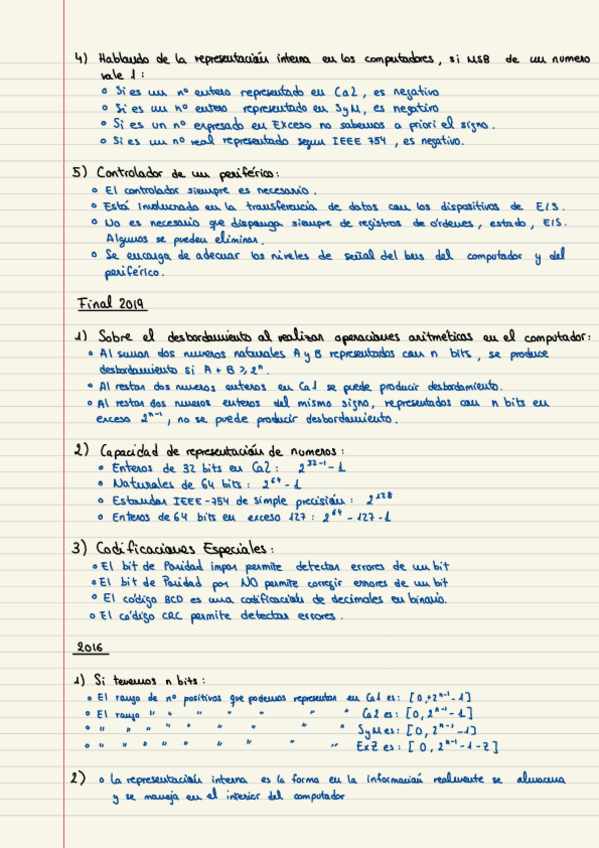 4) Hablando de la representación interna en los computadores, si MSB de un numero
vale 1:
° Si es un nº entero representado en Ca2, es negativo
° Si es un nº entero representado en SyM, es negativo
° Si es un nº expresado en Exceso no sabemos a priori el signo.
° Si es un nº real representado segun IEEE 754, es negativo.
5) Controlador de un periférico:
° El controlador siempre es necesario.
° Está involucrado en la transferencia de datos con los dispositivos de E/S.
° No es necesario que disponga siempre de registros de órdenes, estado, E/S.
Algunos se pueden eliminar.
° Se encarga de adecuar los niveles de señal del bus del computador y del
periférico.
Final 2019
1) Sobre el desbordamiento al realizar operaciones aritméticas en el computador:
° Al sumar dos numeros naturales A y B representados con n bits, se produce
desbordamiento si A + B ≥ 2^n.
° Al restar dos numeros enteros en Ca1 se puede producir desbordamiento.
° Al restar dos numeros enteros del mismo signo, representados con n bits en
exceso 2^n-1, no se puede producir desbordamiento.
2) Capacidad de representación de numeros:
° Enteros de 32 bits en Ca2: 2^32-1 - 1
° Naturales de 64 bits: 2^64 - 1
° Estandar IEEE-754 de simple precisión: 2^128
° Enteros de 64 bits en exceso 127: 2^64 - 127 - 1
3) Codificaciones Especiales:
° El bit de Paridad impar permite detectar errores de un bit
° El bit de Paridad par NO permite corregir errores de un bit
° El código BCD es una codificación de decimales en binario.
° El código CRC permite detectar errores.
2016
1) Si tenemos n bits:
° El rango de nº positivos que podemos representar en Ca1 es: [0, +2^n-1 - 1]
° El rango " " " " " " " Ca2 es: [0, 2^n-1 - 1]
° " " " " " " " " " SyM es: [0, 2^n-1 - 1]
° " " " " " " " " " ExZ es: [0, 2^n-1 - 1 - Z]
2) ° La representación interna es la forma en la información realmente se almacena
y se maneja en el interior del computador